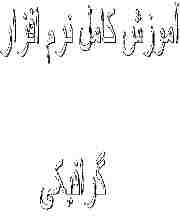 آموزش کامل نرم افزار
گرافیکی